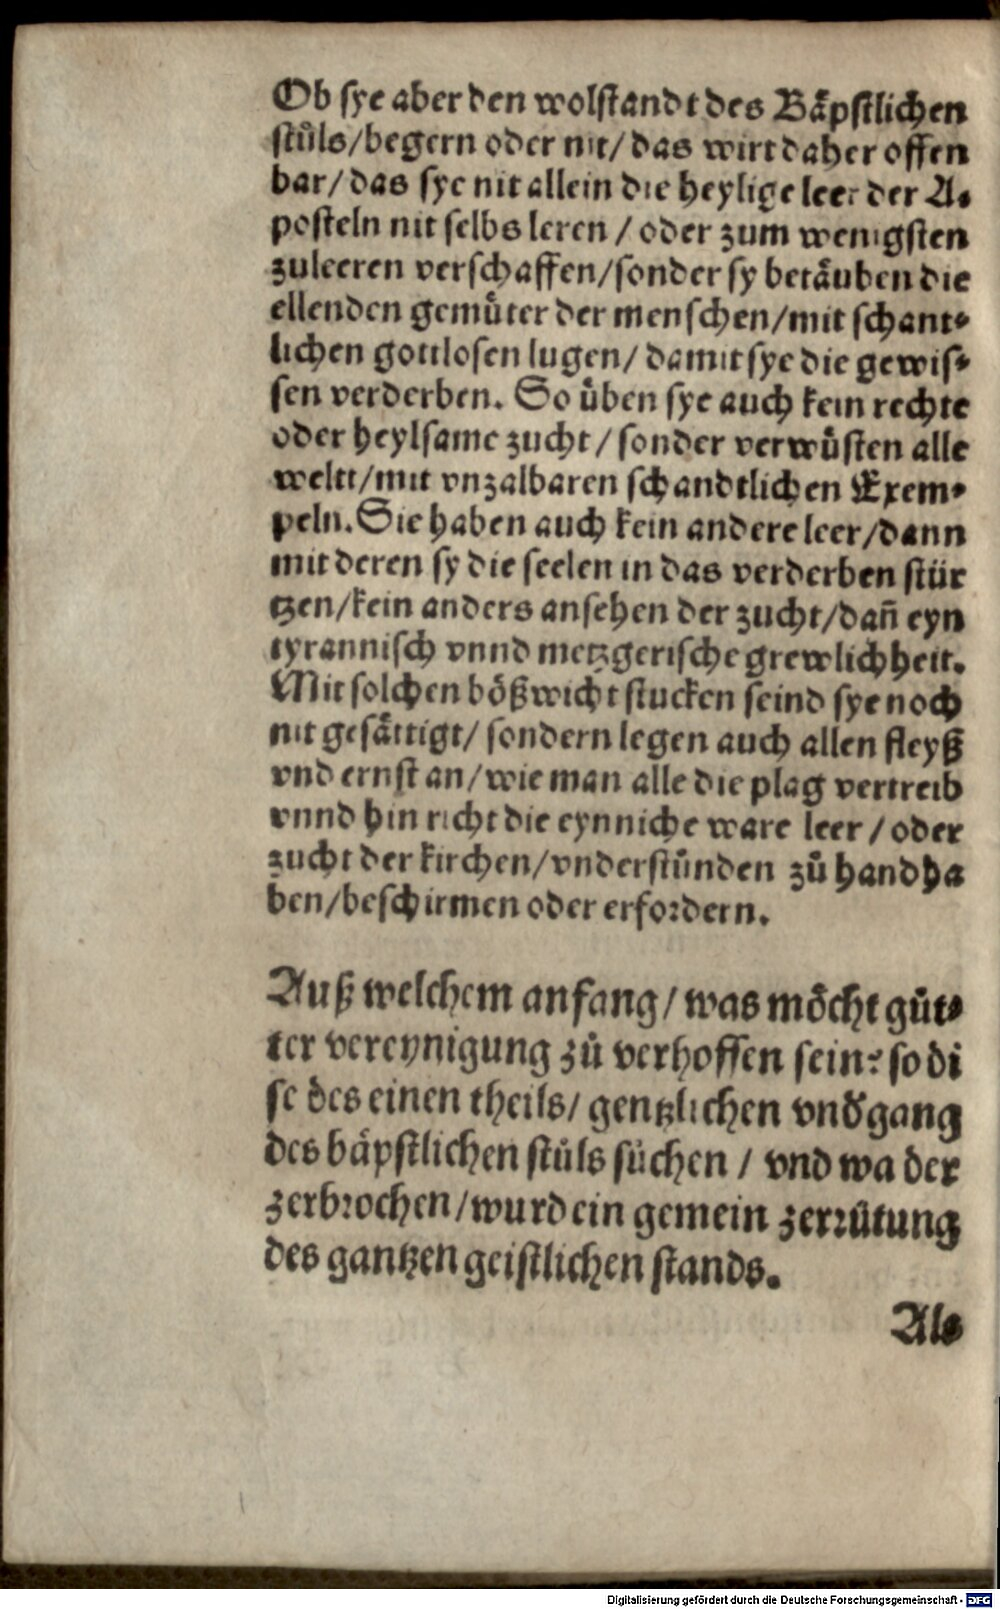 Ob sye aber den wolstandt des Bäpstlichen
stůls/begern oder nit/ das wirt daher offen
bar/ das sye nit allein die heylige leer der A⸗
posteln nit selbs leren / oder zum wenigsten
zuleeren verschaffen/sonder sy betäuben die
ellenden gemüter der menschen/mit schant⸗
lichen gottlosen lugen/ damit sye die gewis⸗
sen verderben. So üben sye auch kein rechte
oder heylsame zucht / sonder verwüsten alle
weltt/mit vnzalbaren schandtlichen Exem⸗
peln. Sie haben auch kein andere leer/dann
mit deren sy die seelen in das verderben stür
tzen/kein anders ansehen der zucht/dañ eyn
tyrannisch vnnd metzgerische grewlichheit.
Mit solchen bößwicht stucken seind sye noch
nit gesättigt/ sondern legen auch allen fleyß
vnd ernst an/wie man alle die plag vertreib
vnnd hin richt die eynniche ware leer / oder
zucht der kirchen/vnderstünden zů handha
ben/beschirmen oder erfordern.
Auß welchem anfang/ was möcht gůt⸗
ter vereynigung zů verhoffen sein? so di
se des einen theils/ gentzlichen vnd̕gang
des bäpstlichen stůls sůchen / vnd wa der
zerbrochen/wurd ein gemein zerrütung
des gantzen geistlichen stands.
Als
Digitalisierung gefördert durch die Deutsche Forschungsgemeinschaft - DFG